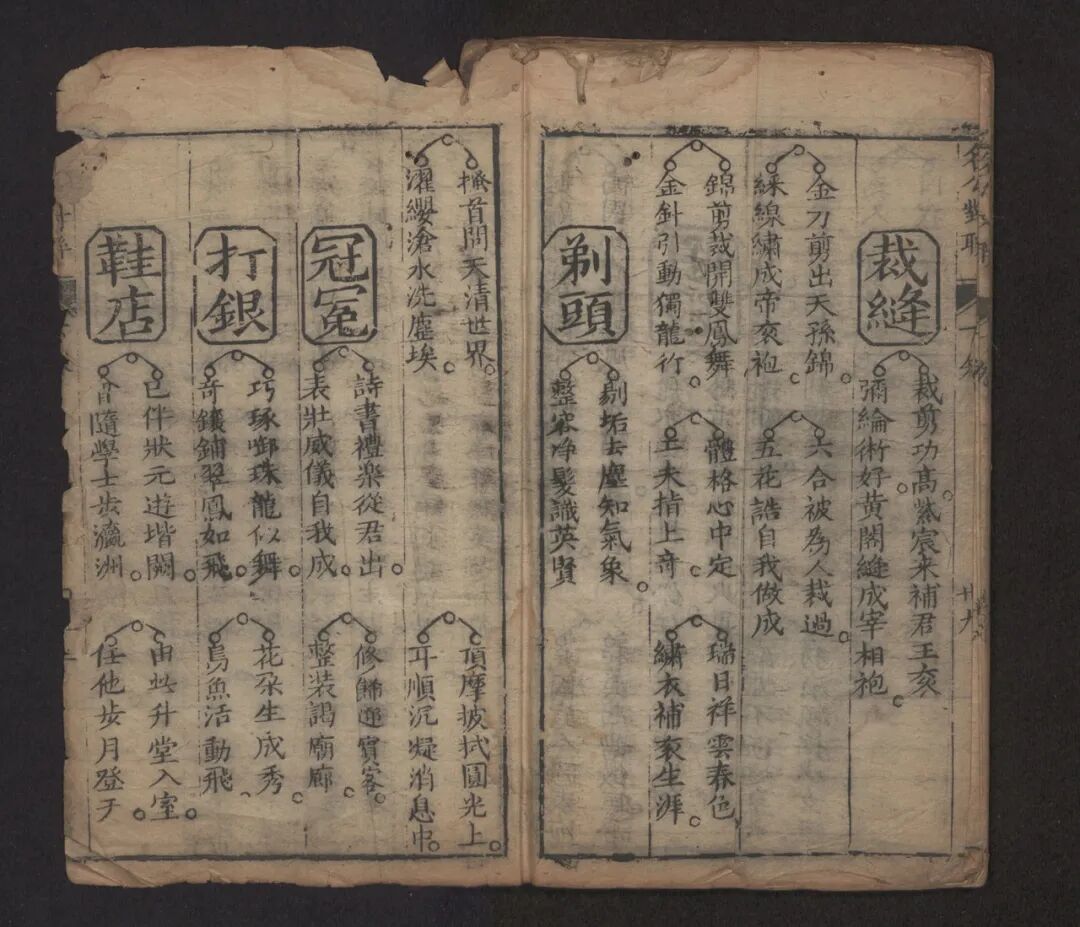 裁縫
裁剪功高紫宸來補君王袞
彌綸術好黃閣縫成宰相袍
金刀剪出天孫錦
綵線繡成帝袞袍
六合被為人裁過
五花誥自我做成
錦剪裁開雙鳳舞
金針引動獨龍行
體格心中定
工夫指上奇
瑞日祥雲春色
繡衣補袞生涯
剃頭
剔垢去塵知氣象
整容净髮識英賢
搔首問天清世界
濯纓滄水洗塵埃
頂摩披拭圓光上
耳順沉凝消息中
冠冕
詩書禮樂從君出
表壯威儀自我成
修飾迎賓客
整装謁廟廊
打銀
巧琢啣珠龍似舞
奇鑲鋪翠鳳如飛
花朶生成秀
鳥魚活動飛
鞋店
已伴狀元遊堦闕
曾隨學士步瀛洲
由此升堂入室
任他步月登于
名公對聯
廿九